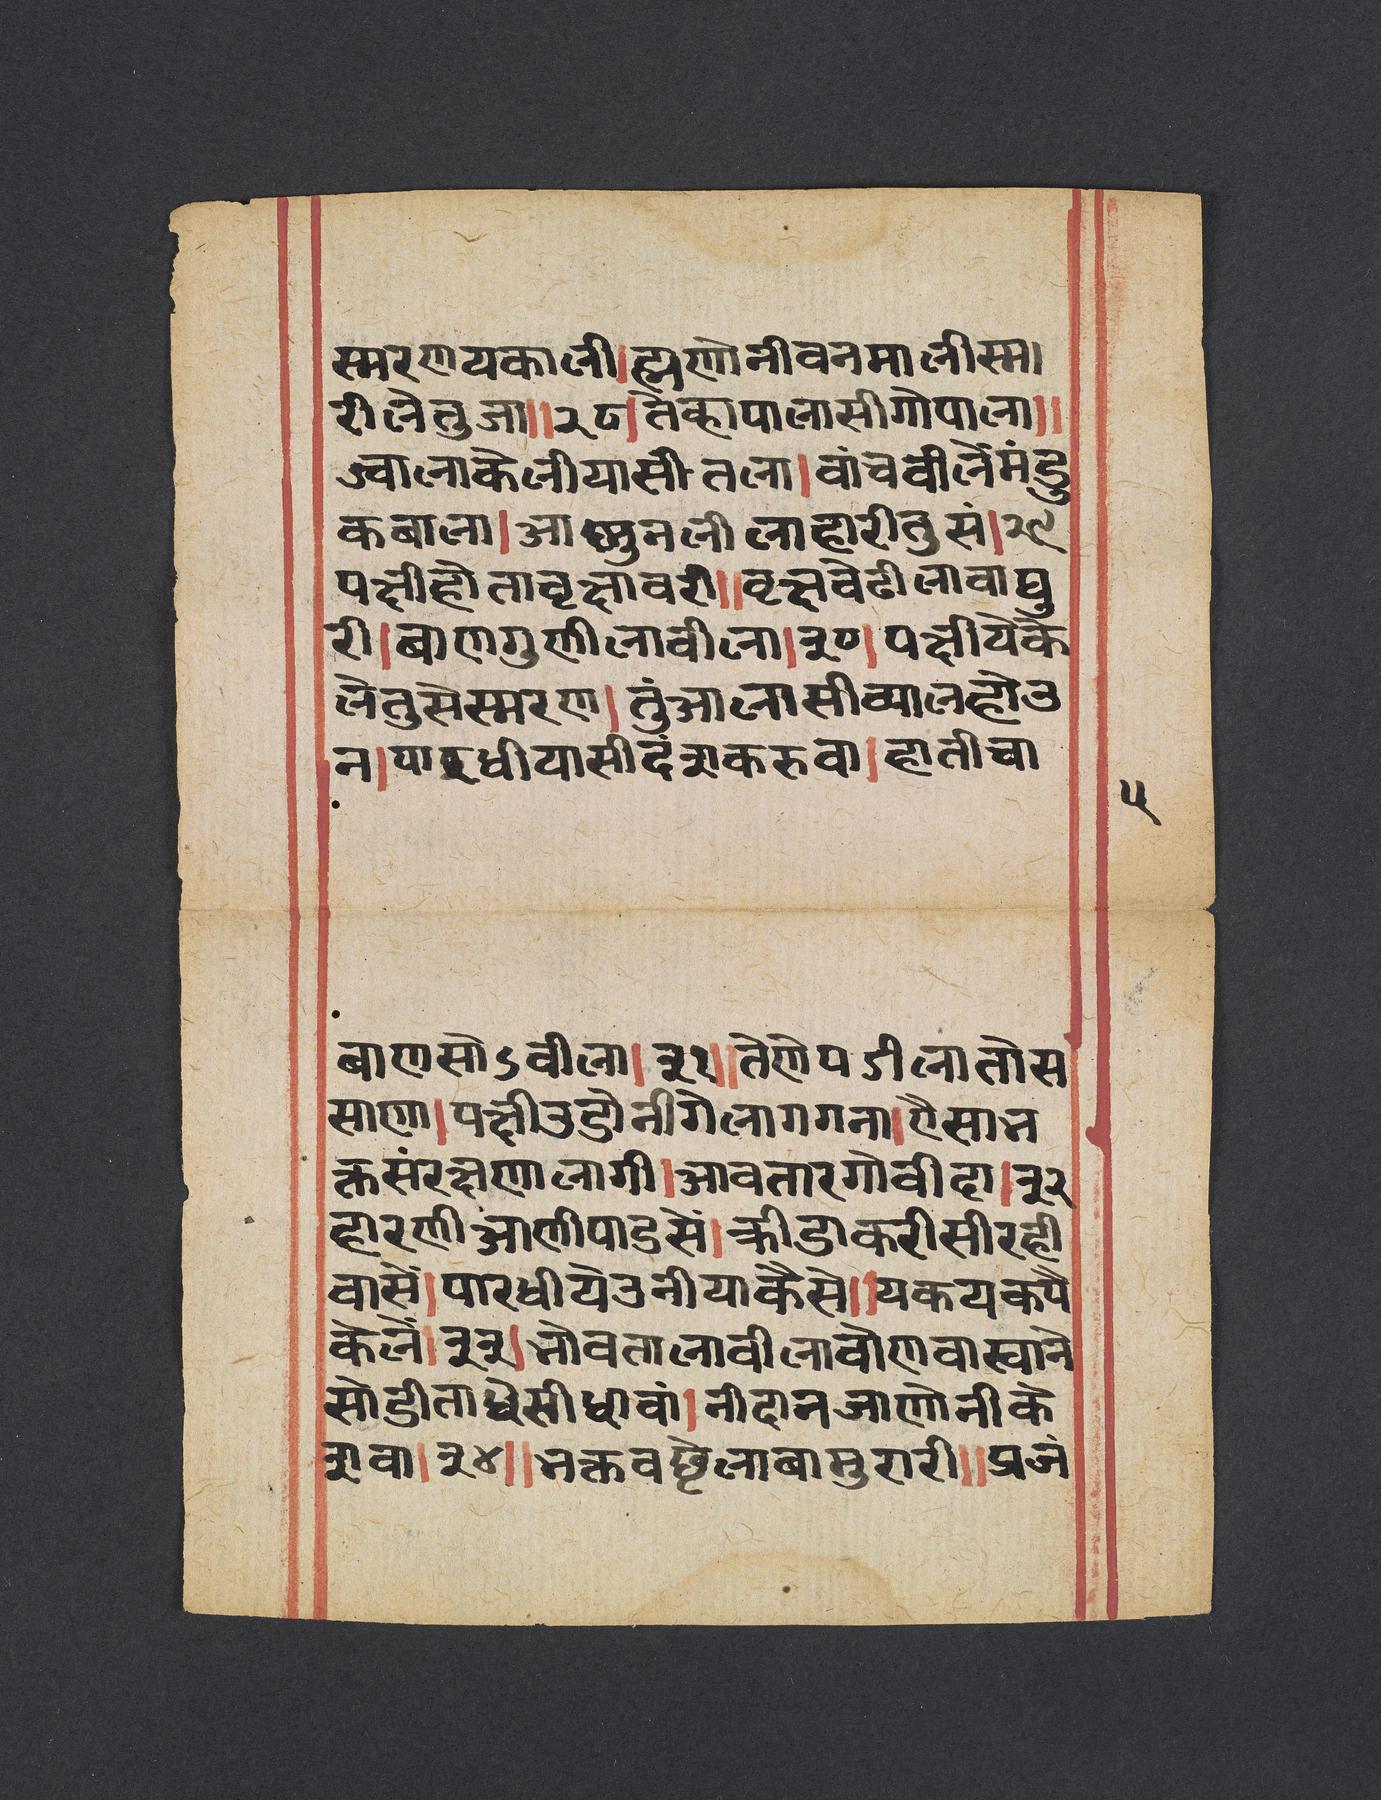 स्मरणयकाली।ह्मणोनीवनमालीस्म।
रीलेतुजा॥२८।तेव्हापालासीगोपाला॥
ज्वालाकेलीयासीतला।वांचवीलेंमंडु
कबाला।आझुनलीलाहारीतुसं।२९
पक्षीहोतावृक्षावरी॥वृक्षवेढीलावाघु
री।बाणगुणीलावीला।३०।पक्षीयेके
लेतुसेस्मरण।तुंआलासीव्यालहोउ
न।पारधीयासीदंशकरुवा।हातीचा
५
बाणसोडवीला।३१॥तेणेपडीलातोस
साणा।पक्षीउडोनीगेलागगना।ऐसाभ
क्तसंरक्षणालागी।आवतारगोवीदा।३२
हारणीआणीपाडसें।क्रीडाकरीसीरही
वासें।पारधीयेउनीयाकैसे॥यकयकपै
केलें।३३।भोवतालावीलावोणवास्वाने
सोडीताधैसीधावां।नीदानजाणोनीके
शवा।३४॥भक्तवछेलाबामुरारी॥प्रजं